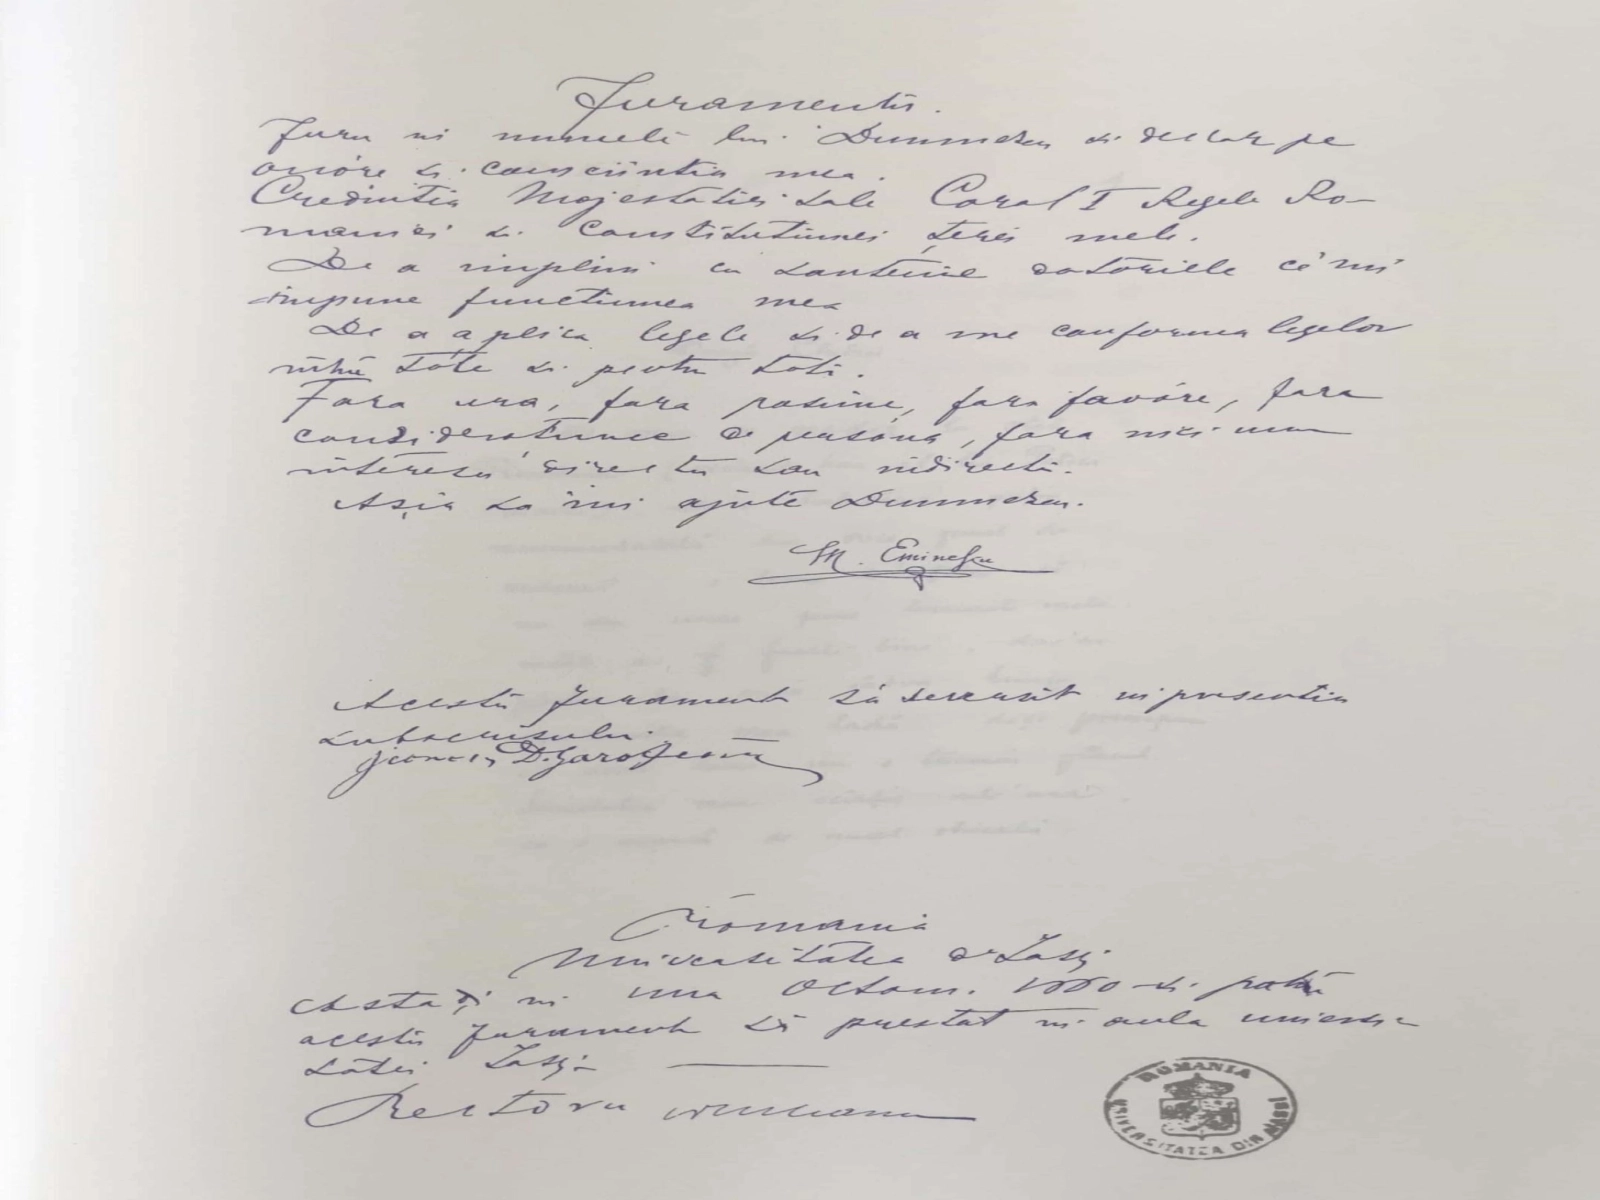 Juramentu.
Juru în numele lui Dumnezeu și declar pe
onóre și consciintia mea.
Credintia Majestatiei Sale Carol I Regele Ro-
maniei și Constitutiunei țerei mele.
De a implini cu santenie datoriele ce mi
impune functiunea mea
De a aplica legele si de a me conforma legelor
intru tóte si pentru toti.
Fara ura, fara pasiune, fara favóre, fara
consideratiune de persóna, fara nici unu
interesu directu sau indirectu.
Așia sa imi ajute Dumnezeu.
M. Eminescu
Acestu Jurament sa severșit in presentia
subscrisului.
D.
Romania
Universitatea d Iași
Astaḑi in una Octom. 1880 si patru
acestu Jurament să prestat in aula universi-
tatei Iași
Rectoru
ROMANIA
UNIVERSITATEA DIN IASSI